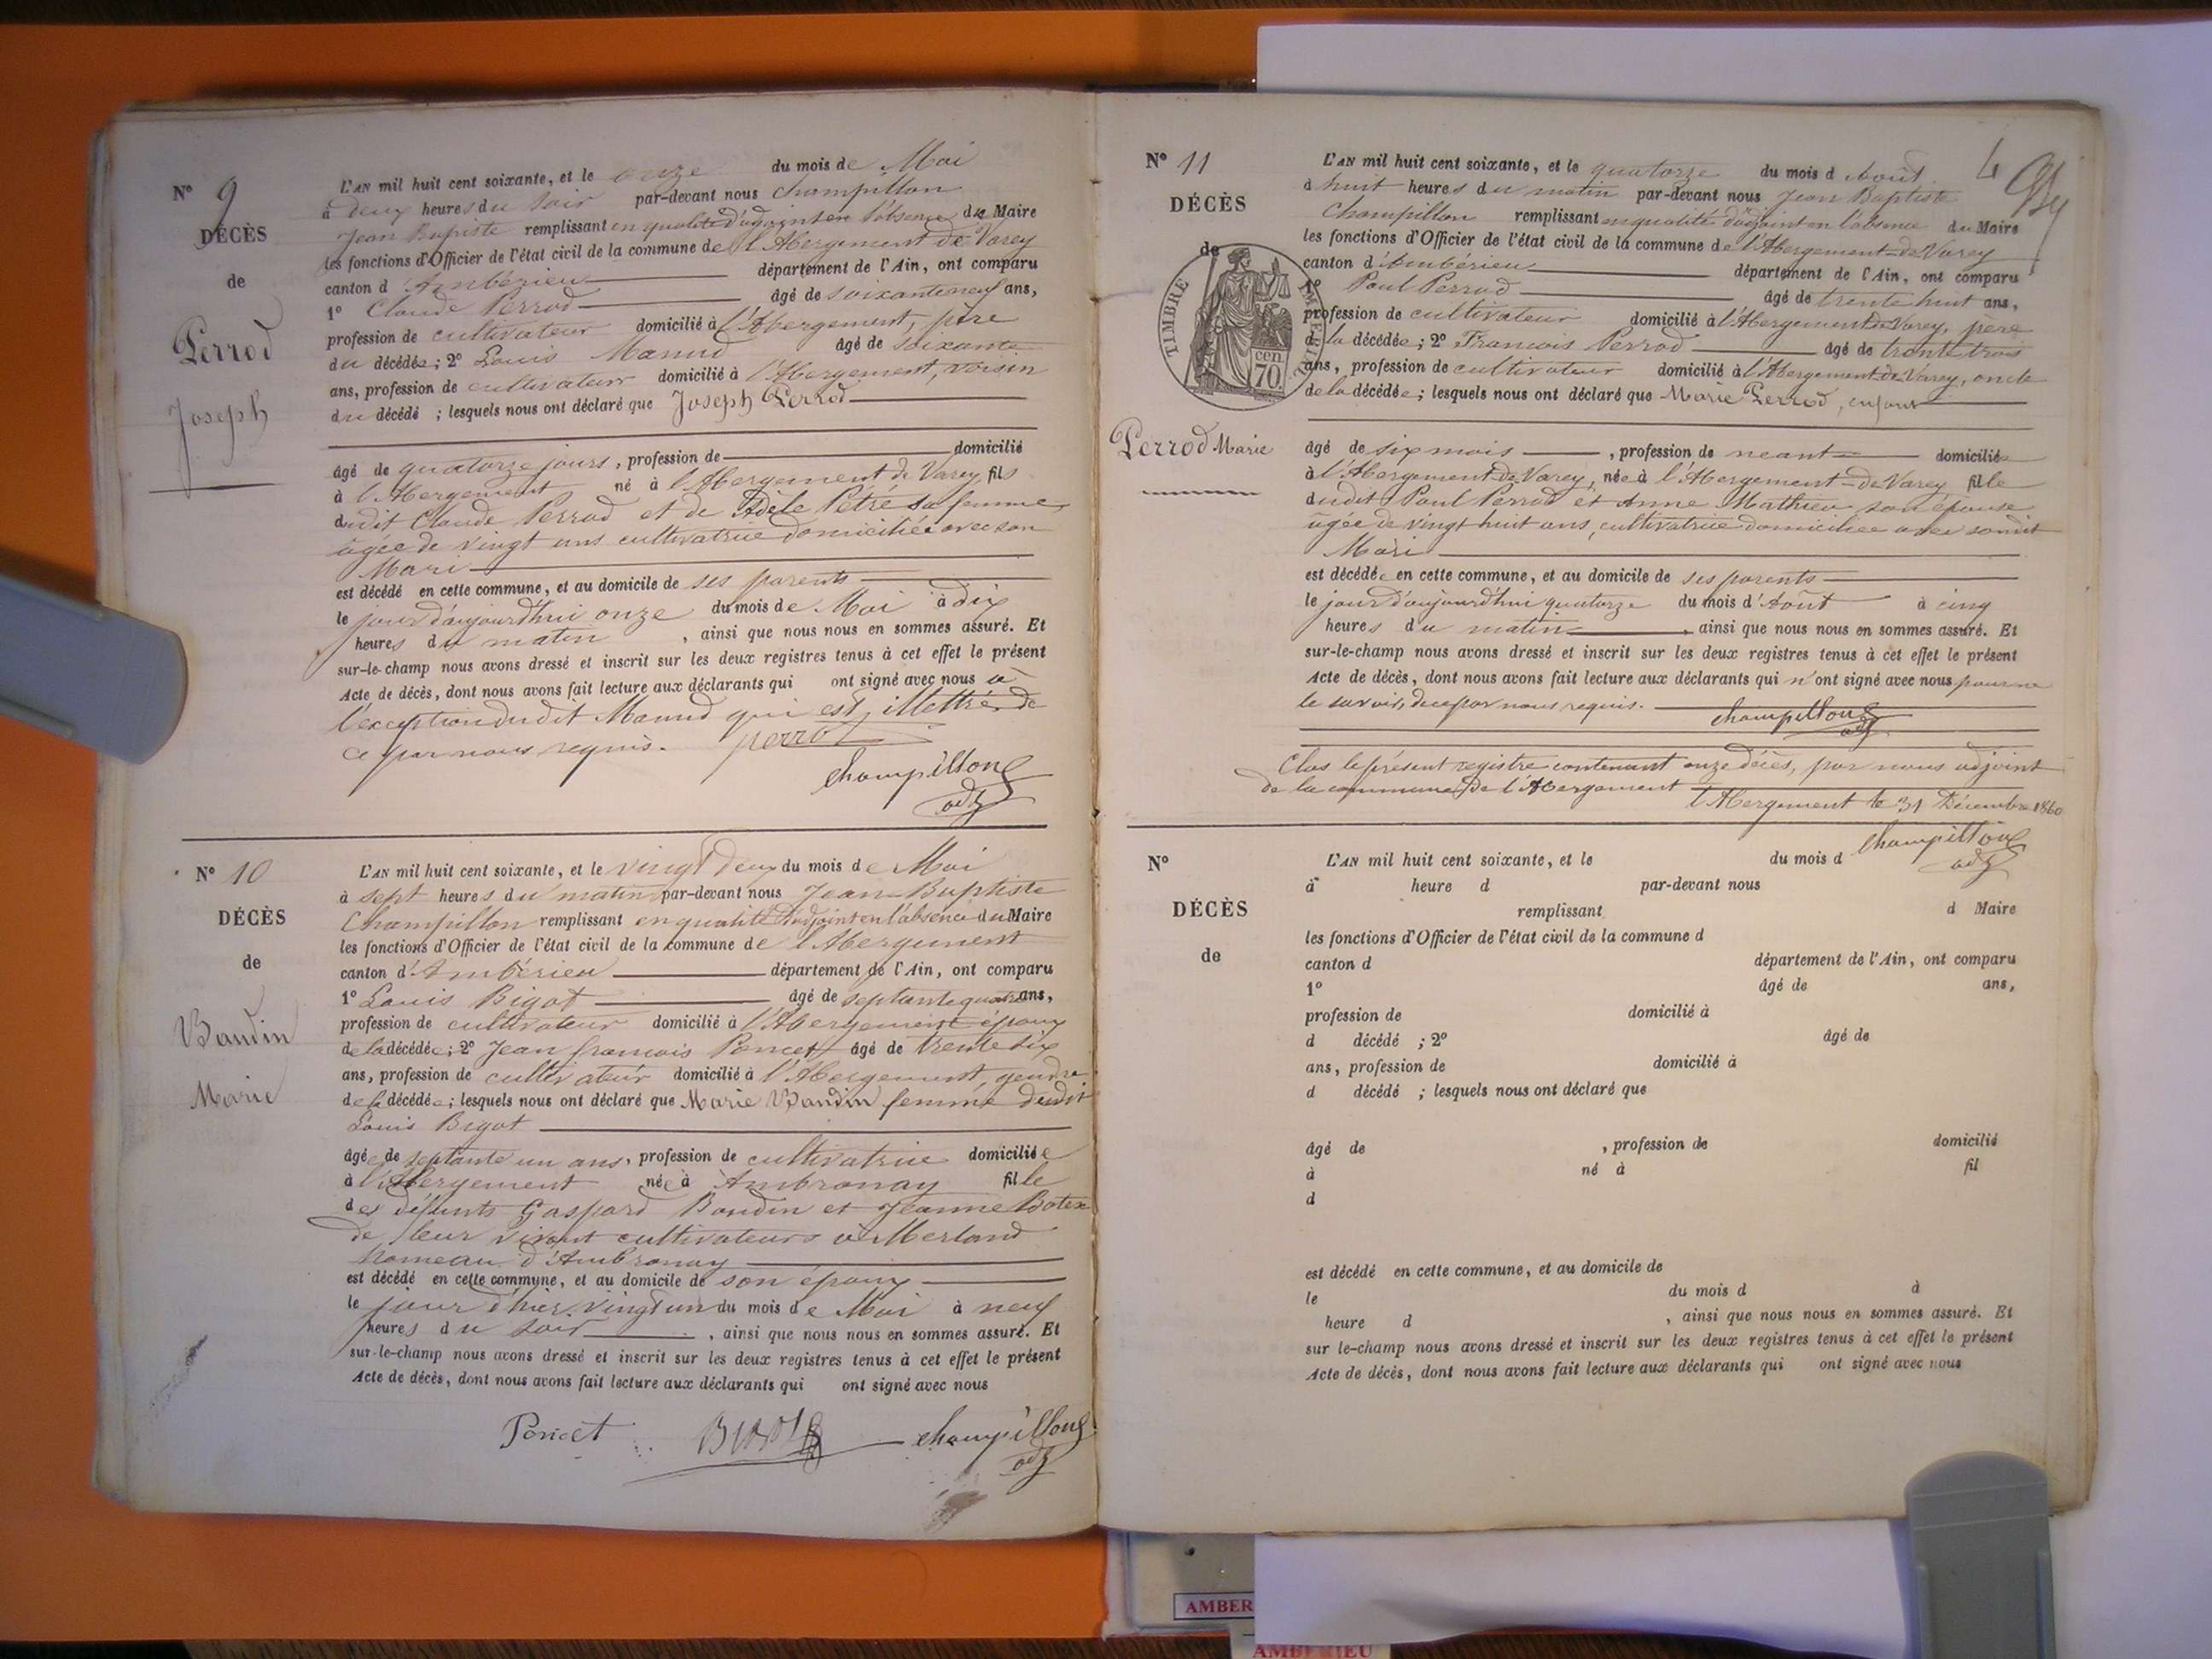 N° 9
DÉCÈS
de
Perrod
Joseph
L'AN mil huit cent soixante, et le onze du mois de Mai
à deux heures du soir par-devant nous Champillon
Jean Baptiste remplissant en qualité d'adjoint en l'absence du Maire
les fonctions d'Officier de l'état civil de la commune de l'Abergement de Varey
canton d'Ambérieu département de l'Ain, ont comparu
1° Claude Perrod âgé de soixante neuf ans,
profession de cultivateur domicilié à l'Abergement, père
du décédée; 2° Louis Manud âgé de soixante
ans, profession de cultivateur domicilié à l'Abergement, voisin
du décédé ; lesquels nous ont déclaré que Joseph Perrod
âgé de quatorze jours, profession de domicilié
à l'Abergement né à l'Abergement de Varey fils
dudit Claude Perrod et de Adèle Pêtre sa femme
âgée de vingt ans cultivatrice domiciliée avec son
Mari
est décédé en cette commune, et au domicile de ses parents
le jour d'aujourd'hui onze du mois de Mai à dix
heures du matin , ainsi que nous nous en sommes assuré. Et
sur-le-champ nous avons dressé et inscrit sur les deux registres tenus à cet effet le présent
Acte de décès, dont nous avons fait lecture aux déclarants qui ont signé avec nous à
l'exception dudit Manud qui est illettré de
ce par nous requis. perrod
Champillon
adj
N° 10
DÉCÈS
de
Baudin
Marie
L'AN mil huit cent soixante, et le vingt deux du mois de Mai
à sept heures du matin par-devant nous Jean-Baptiste
Champillon remplissant en qualité d'adjoint en l'absence du Maire
les fonctions d'Officier de l'état civil de la commune de l'Abergement
canton d'Ambérieu département de l'Ain, ont comparu
1° Louis Bigot âgé de septante quatre ans,
profession de cultivateur domicilié à l'Abergement époux
de la décédée; 2° Jean françois Poncet âgé de trente six
ans, profession de cultivateur domicilié à l'Abergement, gendre
de la décédée; lesquels nous ont déclaré que Marie Baudin femme dudit
Louis Bigot
âgée de septante un ans, profession de cultivatrice domiciliée
à l'Abergement née à Ambronay fille
des défunts Gaspard Baudin et Jeanne Botex
de leur vivant cultivateurs à Merland
hameau d'Ambronay
est décédé en cette commune, et au domicile de son époux
le jour d'hier vingt un du mois de Mai à neuf
heures du soir , ainsi que nous nous en sommes assuré. Et
sur-le-champ nous avons dressé et inscrit sur les deux registres tenus à cet effet le présent
Acte de décès, dont nous avons fait lecture aux déclarants qui ont signé avec nous
Poncet Bigot Champillon
adj
4
N° 11
DÉCÈS
de
TIMBRE IMPÉRIAL
cen.
70.
Perrod Marie
L'AN mil huit cent soixante, et le quatorze du mois d'Août
à huit heures du matin par-devant nous Jean Baptiste
Champillon remplissant en qualité d'adjoint en l'absence du Maire
les fonctions d'Officier de l'état civil de la commune de l'Abergement-de-Varey
canton d'Ambérieu département de l'Ain, ont comparu
1° Paul Perrod âgé de trente huit ans,
profession de cultivateur domicilié à l'Abergement de Varey, père
de la décédée; 2° François Perrod âgé de trente trois
ans, profession de cultivateur domicilié à l'Abergement de Varey, oncle
de la décédée; lesquels nous ont déclaré que Marie Perrod, enfant
âgé de six mois , profession de neant domiciliée
à l'Abergement-de-Varey, née à l'Abergement-de-Varey fille
dudit Paul Perrod et Anne Mathieu son épouse
âgée de vingt huit ans, cultivatrice domiciliée avec sondit
Mari
est décédée en cette commune, et au domicile de ses parents
le jour d'aujourdhui quatorze du mois d'Août à cinq
heures du matin , ainsi que nous nous en sommes assuré. Et
sur-le-champ nous avons dressé et inscrit sur les deux registres tenus à cet effet le présent
Acte de décès, dont nous avons fait lecture aux déclarants qui n'ont signé avec nous pour ne
le savoir, de ce par nous requis. Champillon
adj
Clos le présent registre contenant onze décès, par nous adjoint
de la commune de l'Abergement
l'Abergement le 31 Décembre 1860
Champillon
adj
N°
DÉCÈS
de
L'AN mil huit cent soixante, et le du mois d
à heure d par-devant nous
remplissant d Maire
les fonctions d'Officier de l'état civil de la commune d
canton d département de l'Ain, ont comparu
1° âgé de ans,
profession de domicilié à
d décédé ; 2° âgé de
ans, profession de domicilié à
d décédé ; lesquels nous ont déclaré que
âgé de , profession de domicilié
à né à fil
d
est décédé en cette commune, et au domicile de
le du mois d à
heure d , ainsi que nous nous en sommes assuré. Et
sur le-champ nous avons dressé et inscrit sur les deux registres tenus à cet effet le présent
Acte de décès, dont nous avons fait lecture aux déclarants qui ont signé avec nous
AMBER